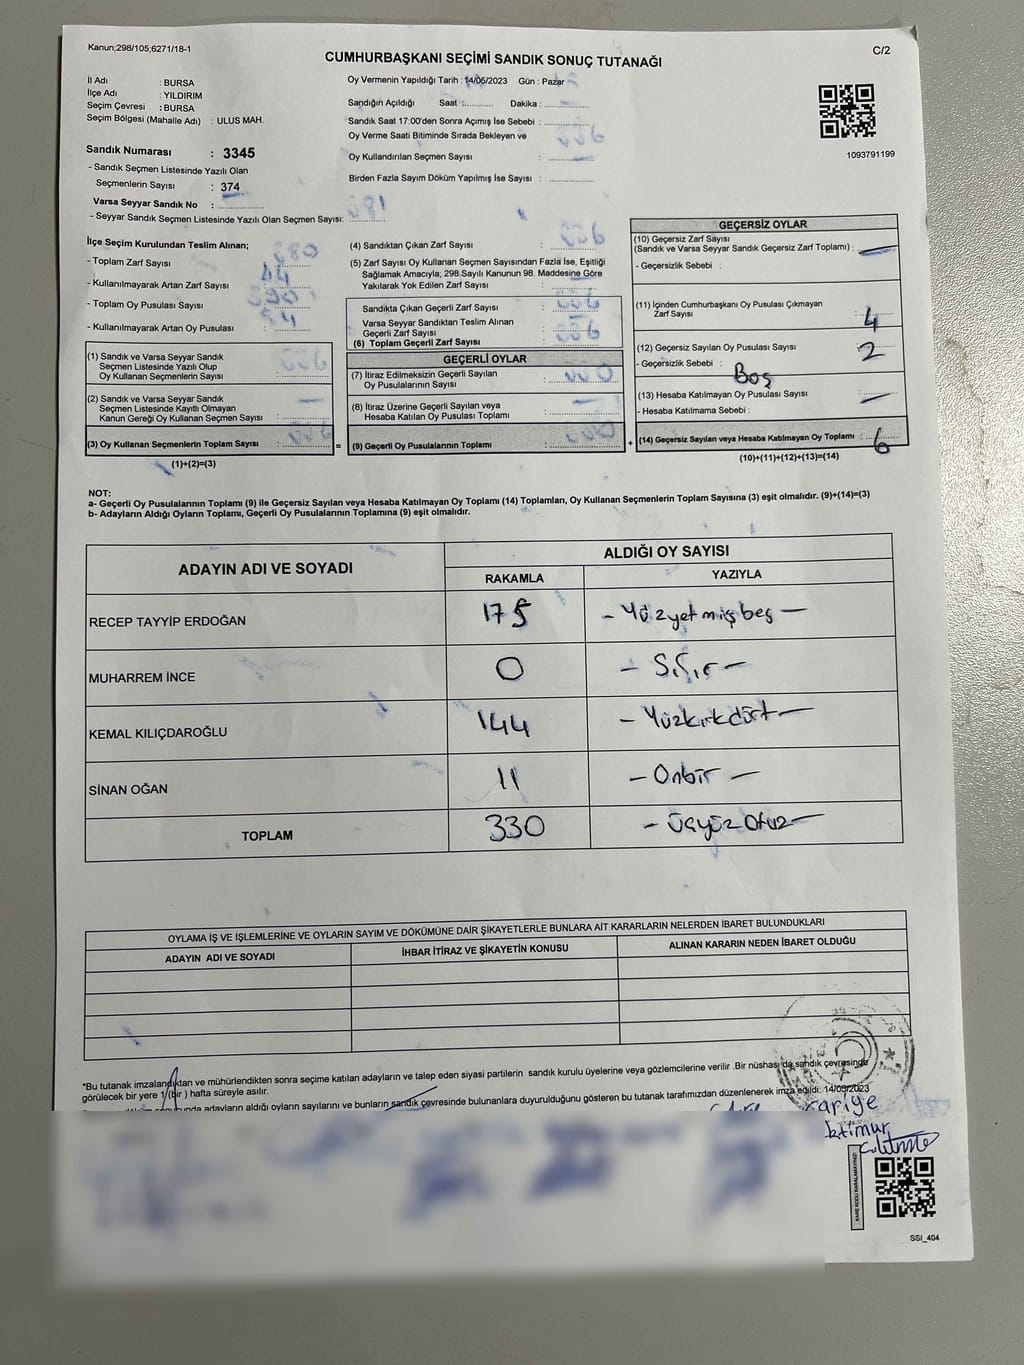 Kanun;298/105;6271/18-1
C/2
CUMHURBAŞKANI SEÇİMİ SANDIK SONUÇ TUTANAĞI
İl Adı : BURSA
İlçe Adı : YILDIRIM
Seçim Çevresi : BURSA
Seçim Bölgesi (Mahalle Adı) : ULUS MAH.
Oy Vermenin Yapıldığı Tarih : 14/05/2023 Gün : Pazar
Sandığın Açıldığı Saat :........... Dakika : ...............
Sandık Saat 17:00'den Sonra Açımış İse Sebebi : ...............
Oy Verme Saati Bitiminde Sırada Bekleyen ve
Oy Kullandırılan Seçmen Sayısı : ...............
Birden Fazla Sayım Döküm Yapılmış İse Sayısı : ...............
1093791199
Sandık Numarası : 3345
- Sandık Seçmen Listesinde Yazılı Olan
Seçmenlerin Sayısı : 374
Varsa Seyyar Sandık No : ...............
- Seyyar Sandık Seçmen Listesinde Yazılı Olan Seçmen Sayısı: ...............
İlçe Seçim Kurulundan Teslim Alınan;
- Toplam Zarf Sayısı
- Kullanılmayarak Artan Zarf Sayısı
- Toplam Oy Pusulası Sayısı
- Kullanılmayarak Artan Oy Pusulası
(1) Sandık ve Varsa Seyyar Sandık
Seçmen Listesinde Yazılı Olup
Oy Kullanan Seçmenlerin Sayısı
(2) Sandık ve Varsa Seyyar Sandık
Seçmen Listesinde Kayıtlı Olmayan
Kanun Gereği Oy Kullanan Seçmen Sayısı
(3) Oy Kullanan Seçmenlerin Toplam Sayısı
(1)+(2)=(3)
(4) Sandıktan Çıkan Zarf Sayısı
(5) Zarf Sayısı Oy Kullanan Seçmen Sayısından Fazla İse, Eşitliği
Sağlamak Amacıyla; 298.Sayılı Kanunun 98. Maddesine Göre
Yakılarak Yok Edilen Zarf Sayısı
Sandıkta Çıkan Geçerli Zarf Sayısı
Varsa Seyyar Sandıktan Teslim Alınan
Geçerli Zarf Sayısı
(6) Toplam Geçerli Zarf Sayısı
GEÇERLİ OYLAR
(7) İtiraz Edilmeksizin Geçerli Sayılan
Oy Pusulalarının Sayısı
(8) İtiraz Üzerine Geçerli Sayılan veya
Hesaba Katılan Oy Pusulası Toplamı
(9) Geçerli Oy Pusulalarının Toplamı
GEÇERSİZ OYLAR
(10) Geçersiz Zarf Sayısı
(Sandık ve Varsa Seyyar Sandık Geçersiz Zarf Toplamı) :
- Geçersizlik Sebebi :
(11) İçinden Cumhurbaşkanı Oy Pusulası Çıkmayan
Zarf Sayısı : 4
(12) Geçersiz Sayılan Oy Pusulası Sayısı : 2
- Geçersizlik Sebebi : Boş
(13) Hesaba Katılmayan Oy Pusulası Sayısı
- Hesaba Katılmama Sebebi :
(14) Geçersiz Sayılan veya Hesaba Katılmayan Oy Toplamı : 6
(10)+(11)+(12)+(13)=(14)
NOT:
a- Geçerli Oy Pusulalarının Toplamı (9) ile Geçersiz Sayılan veya Hesaba Katılmayan Oy Toplamı (14) Toplamları, Oy Kullanan Seçmenlerin Toplam Sayısına (3) eşit olmalıdır. (9)+(14)=(3)
b- Adayların Aldığı Oyların Toplamı, Geçerli Oy Pusulalarının Toplamına (9) eşit olmalıdır.
ADAYIN ADI VE SOYADI
ALDIĞI OY SAYISI
RAKAMLA YAZIYLA
RECEP TAYYİP ERDOĞAN 175 - Yüzyetmişbeş -
MUHARREM İNCE 0 - Sıfır -
KEMAL KILIÇDAROĞLU 144 - Yüzkırkdört -
SİNAN OĞAN 11 - Onbir -
TOPLAM 330 - Üçyüz Otuz -
OYLAMA İŞ VE İŞLEMLERİNE VE OYLARIN SAYIM VE DÖKÜMÜNE DAİR ŞİKAYETLERLE BUNLARA AİT KARARLARIN NELERDEN İBARET BULUNDUKLARI
ADAYIN ADI VE SOYADI İHBAR İTİRAZ VE ŞİKAYETİN KONUSU ALINAN KARARIN NEDEN İBARET OLDUĞU
*Bu tutanak imzalandıktan ve mühürlendikten sonra seçime katılan adayların ve talep eden siyasi partilerin sandık kurulu üyelerine veya gözlemcilerine verilir .Bir nüshası da sandık çevresinde
görülecek bir yere 1 (bir ) hafta süreyle asılır.
adayların aldığı oyların sayılarını ve bunların sandık çevresinde bulunanlara duyurulduğunu gösteren bu tutanak tarafımızdan düzenlenerek imza edildi. 14/05/2023
KARE KODU KARALAMAYINIZ!
SSI_404